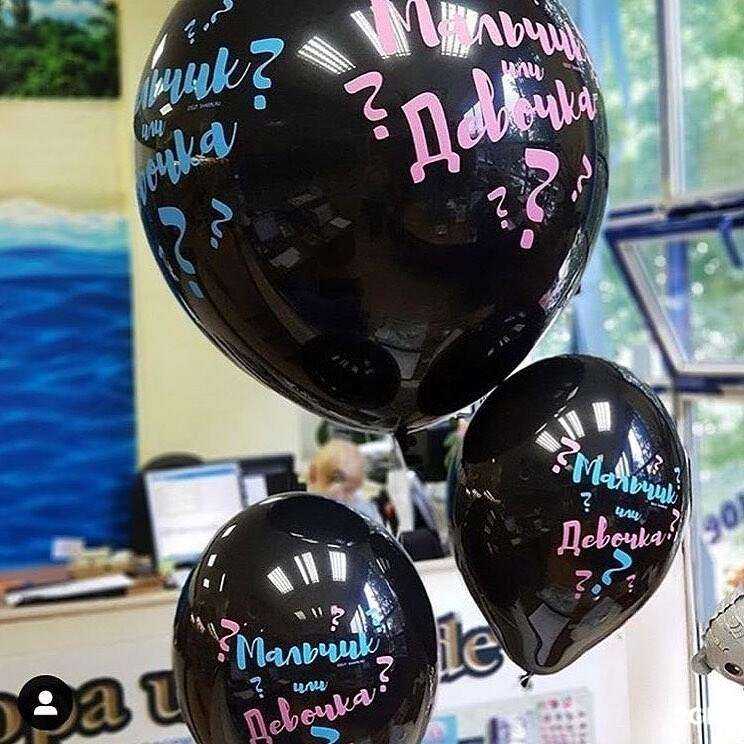 Мальчик
или
Девочка
???
Мальчик
или
Девочка
?
Мальчик
или
Девочка
?
Мальчик
или
Девочка
?